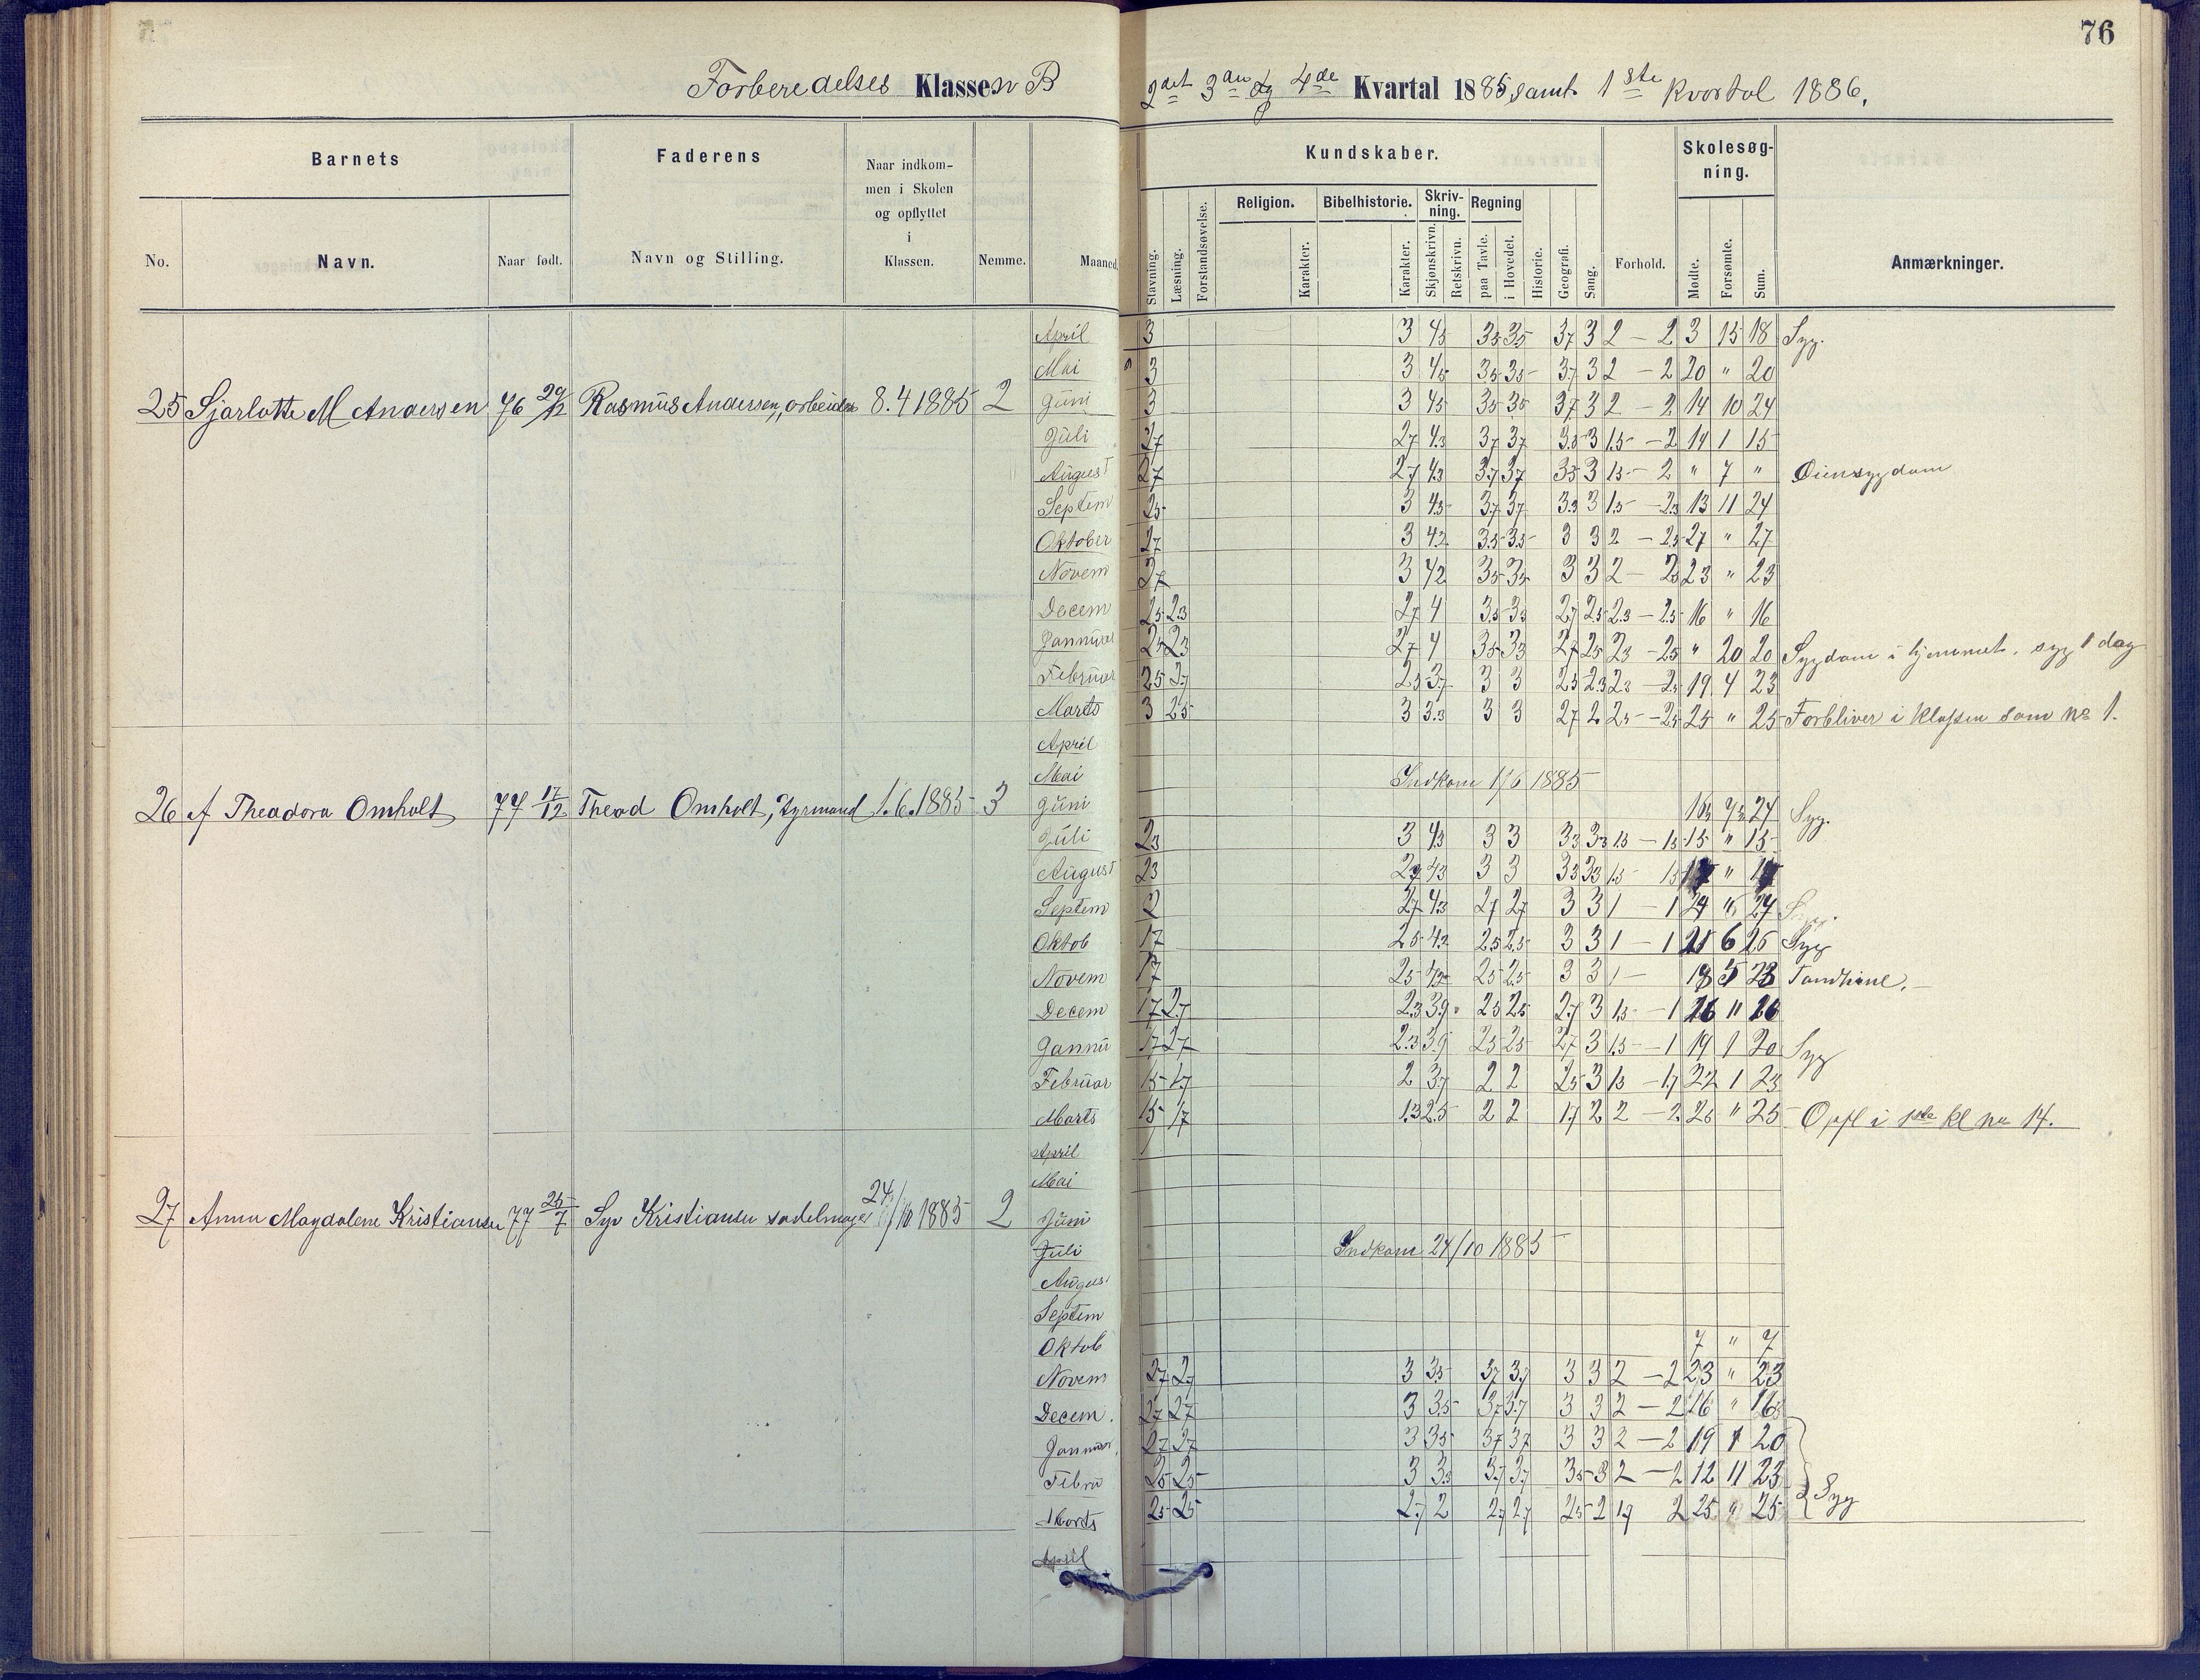 76
Forberedelses Klassen B
2det 3die og 4de Kvartal 1885, samt 1ste Kvartal 1886.
Barnets Faderens Naar indkommen i Skolen og opflyttet i Klassen. Nemme. Maaned. Kundskaber. Forhold. Skolesøgning. Anmærkninger.
No. Navn. Naar født. Navn og Stilling. Stavning. Læsning. Forstandsøvelse. Religion. Karakter. Bibelhistorie. Karakter. Skrivning. Skjønskrivn. Retskrivn. Regning paa Tavle. i Hovedet. Historie. Geografi. Sang. Mødte. Forsømte. Sum.
April 3 3 3 2 - 2 3 15 18 Syg.
Mai 3 3 3 2 - 2 20 " 20
25 Sjarlotte M Andersen 76 29/12 Rasmus Andersen, arbeider 8.4 1885 2 Juni 3 3 3 2 - 2 14 10 24
Juli 27 27 43 37 37 3 15 - 2 14 1 15
August 27 27 43 37 37 35 3 15 - 2 " 7 " Øiensygdom
Septem 25 3 43 37 37 33 3 15 - 23 13 11 24
Oktober 27 3 42 35 35 3 3 2 - 25 27 " 27
Novem 27 3 42 35 35 3 3 2 - 23 " 23
Decem 25 23 27 4 35 33 27 25 23 - 25 16 " 16
Januar 23 27 4 35 33 27 25 23 - 25 " 20 20 Sygdom i hjemmet, syg 1 dag
Februar 25 27 25 37 3 3 25 23 23 - 25 19 4 23
Marts 3 25 3 33 3 3 27 2 25 - 25 25 " 25 Forbliver i Klassen som no 1.
April
Mai Indkom 1/6 1885
26 A Theodora Omholt 77 17/12 Theod Omholt, Styrmand 1.6.1885 3 Juni 24 Syg.
Juli 23 3 43 3 3 33 33 15 - 15 15 " 15
August 23 27 43 3 3 33 33 15 - 15 "
Septem 2 27 43 27 27 3 3 1 - 1 24 " 24
Oktob 17 25 42 25 25 3 3 1 - 1 21 6 Syg
Novem 17 25 42 25 25 3 3 1 - 18 5 23 Tandpine.
Decem 17 27 23 39 25 25 27 3 15 - 1 26 " 26
Jannu 17 27 23 39 25 25 27 3 15 - 1 19 1 20 Syg
Februar 15 17 2 37 2 2 25 3 15 - 17 22 1 23
Marts 15 17 13 25 2 2 17 2 2 - 2 25 " 25 Opfl i 1ste kl no 14.
April
Mai
27 Anna Magdalene Kristiansen 77 25/7 Syv Kristiansen sadelmager 24/10 1885 2 Juni
Juli Indkom 24/10 1885
August
Septem
Oktob 7 " 7
Novem 27 27 3 35 37 37 3 3 2 - 2 23 " 23
Decem. 27 27 3 35 37 37 3 3 2 - 2 16 " 16
Januar. 27 27 3 35 37 37 3 3 2 - 2 19 1 20
Febru 25 25 3 33 37 37 35 3 2 - 2 12 11 23 Syg
Marts 25 25 27 2 27 27 25 2 17 2 25 " 25
April